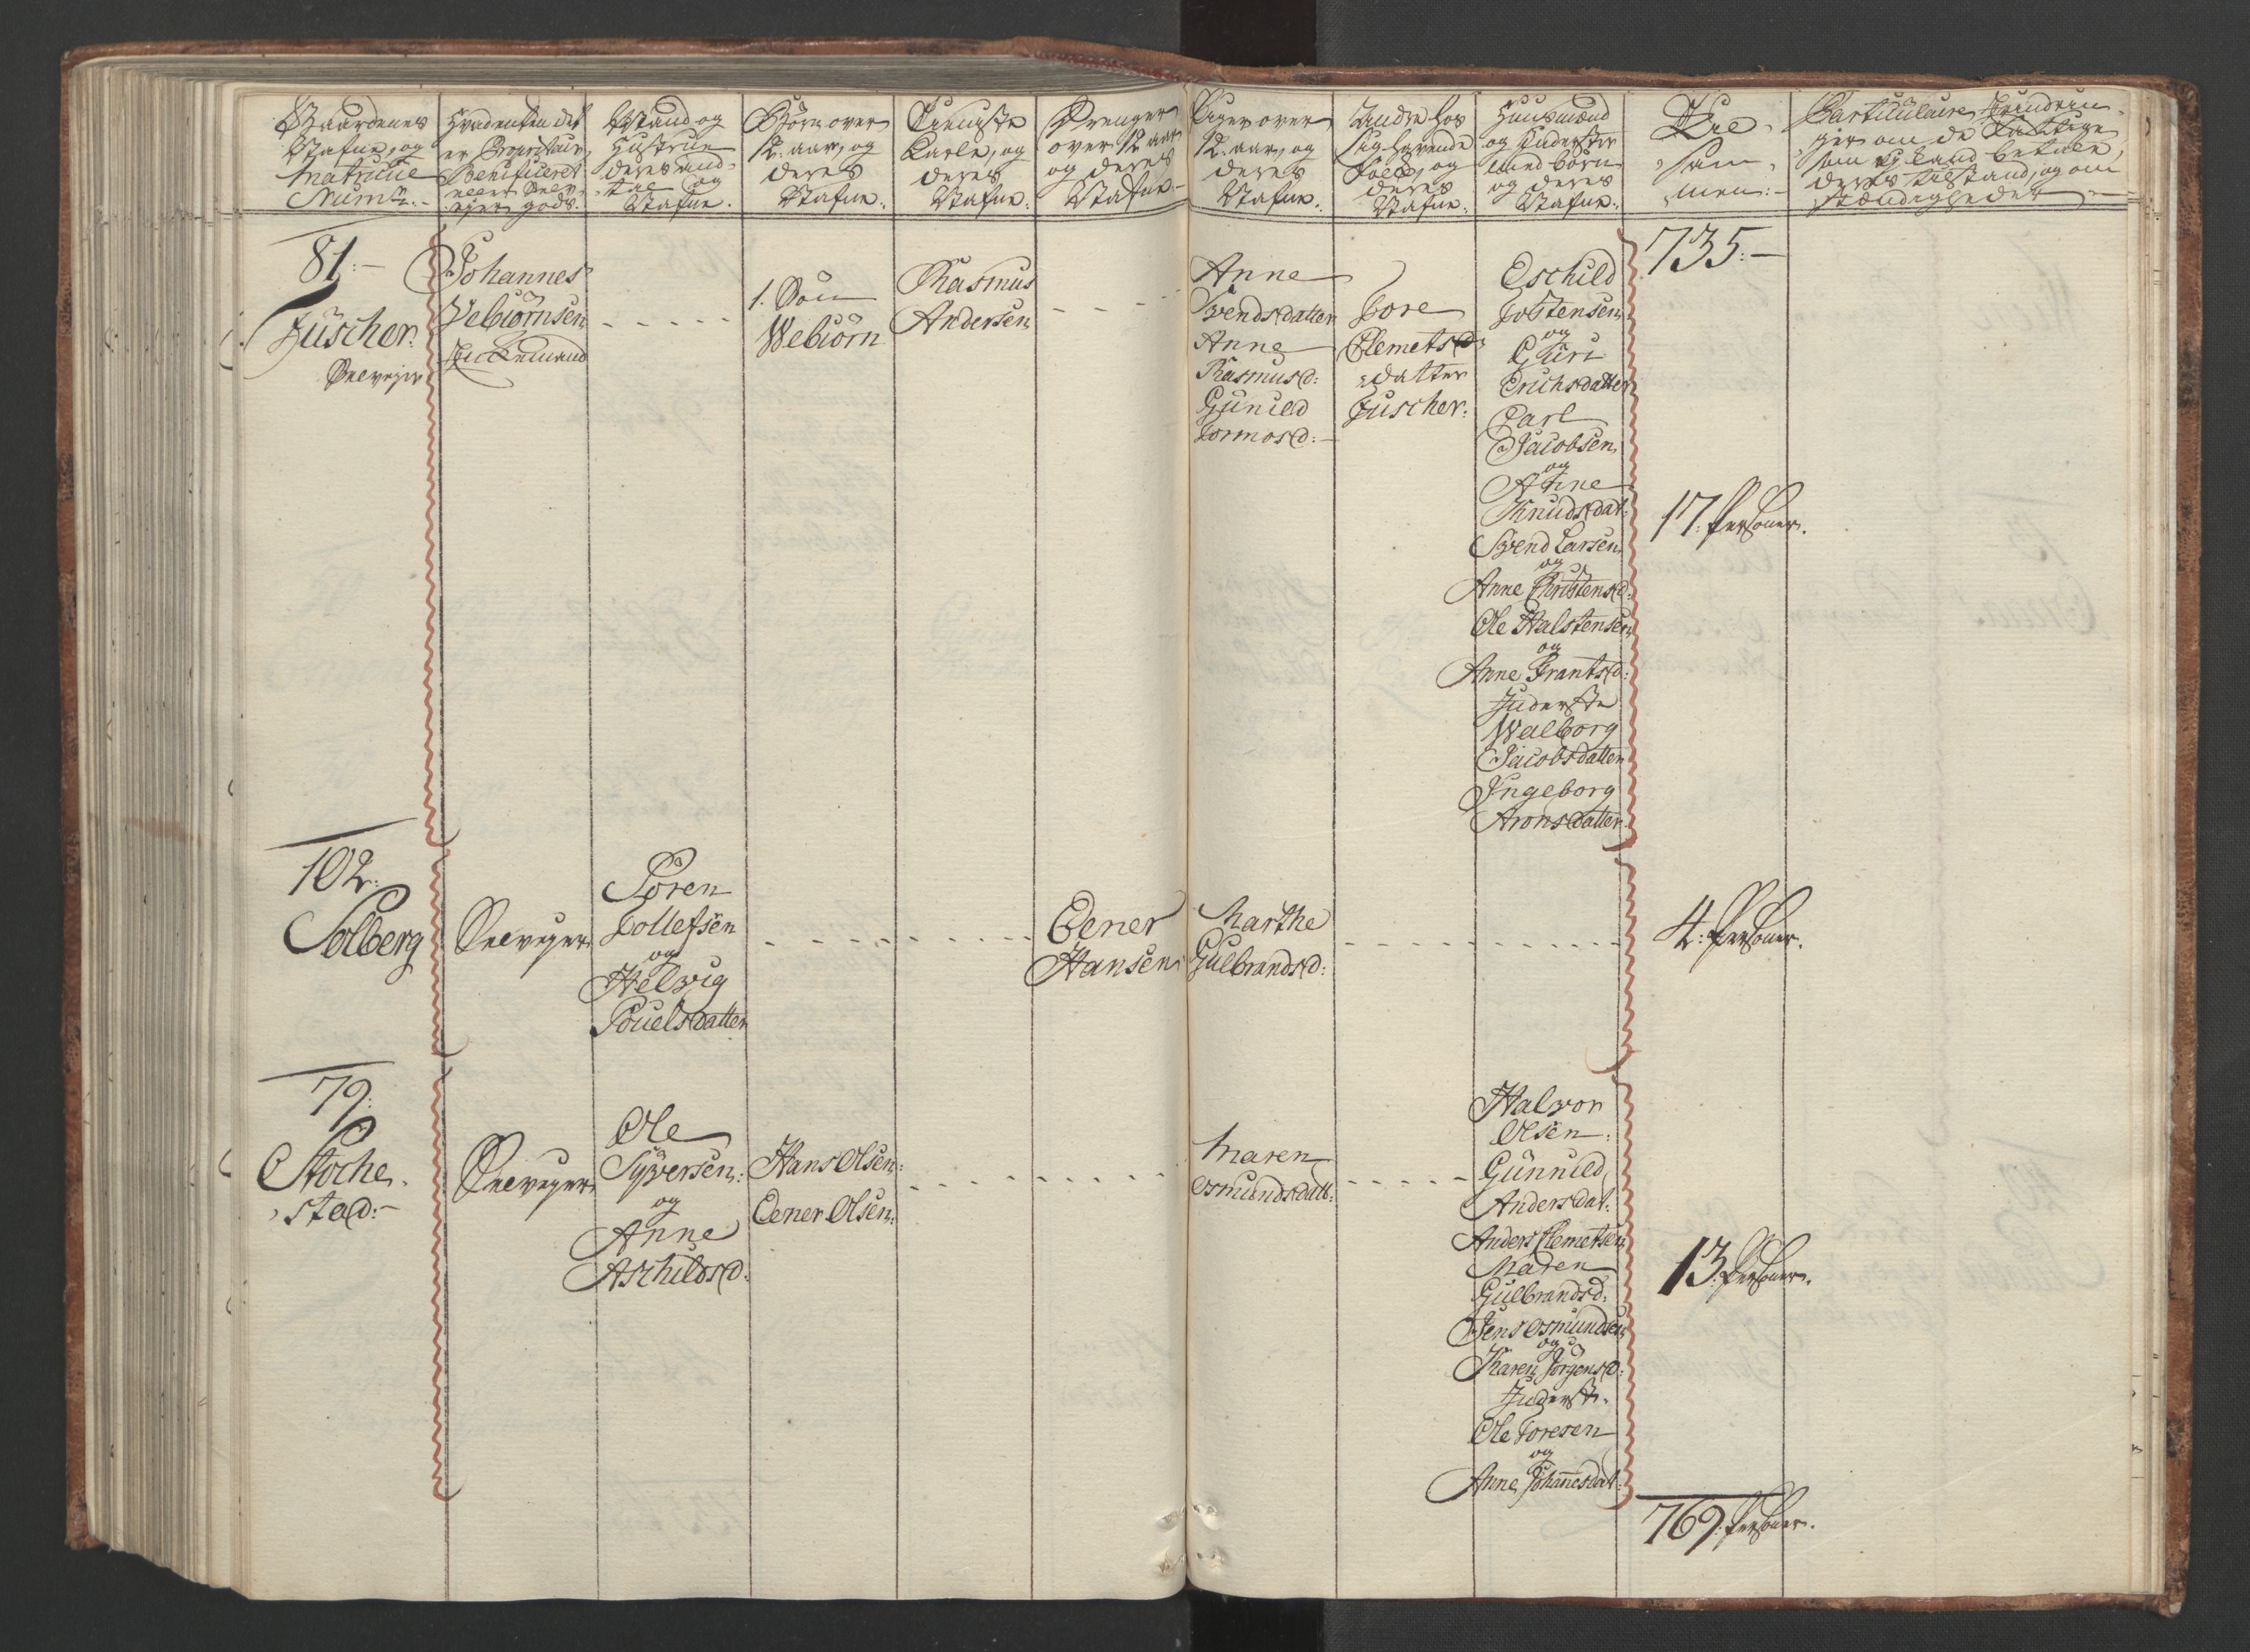 Gaardenes
Nafne, og
Matricul
Num:
Hvad enten det
er Proprietair,
Beneficeret
eller Selv-
eyer gods.
Mand og
Hustrue
deres and-
tal og
Nafne.
Børn over
12. aar, og
deres
Nafne.
Tieniste
Karle, og
deres
Nafne.
Drenger
over 12 aar
og deres
Nafne
Piger over
12. aar, og
deres
Nafne.
Andre hos
sig havende
Folck, og
deres
Nafne.
Huusmænd
og Inderster
med børn
og deres
Nafne.
Til-
sam-
men:
Particulaire Erindrin-
ger om de Fattige
som ey kand betale,
deres tilstand, og om
stændigheder
81:
Fuscher.
Selveyer
Johannes
Vebiørnsen
Enckemand
1. Søn
Webiørn
Rasmus
Andersen
Anne
Svendsdatter
Anne
Rasmusd:
Gunild
Tormosd:
Tore
Clemets
datter
Fuscher.
Eschild
Tostensen
og
Guri
Erichsdatter
Carl
Jacobsen
og
Anne
Knudsdat:
Svend Larsen
og
Anne Christensd:
Ole Halstensen
og
Anne Frantsd:
Inderste
Walborg
Jacobsdatter
Ingeborg
Aronsdatter
735:
17: Personer.
102:
Solberg
Selveyer
Soren
Tollefsen
og
Helvig
Pouelsdatter
Eener
Hansen
Marthe
Gulbrandsd:
4: Personer.
79:
Stoche
stad:
Selveyer
Ole
Syversen:
og
Anne
Aschildsd:
Hans Olsen:
Eener Olsen:
Maren
Osmundsdatt:
Halvor
Olsen:
Gunnild
Andersdat:
Anders Clemetsen
Maren
Gulbrandsd:
Jens Osmundsen
og
Karen Jørgensd:
Inderste.
Ole Toresen
og
Anne Johannesdat:
13: Personer.
769: Personer.